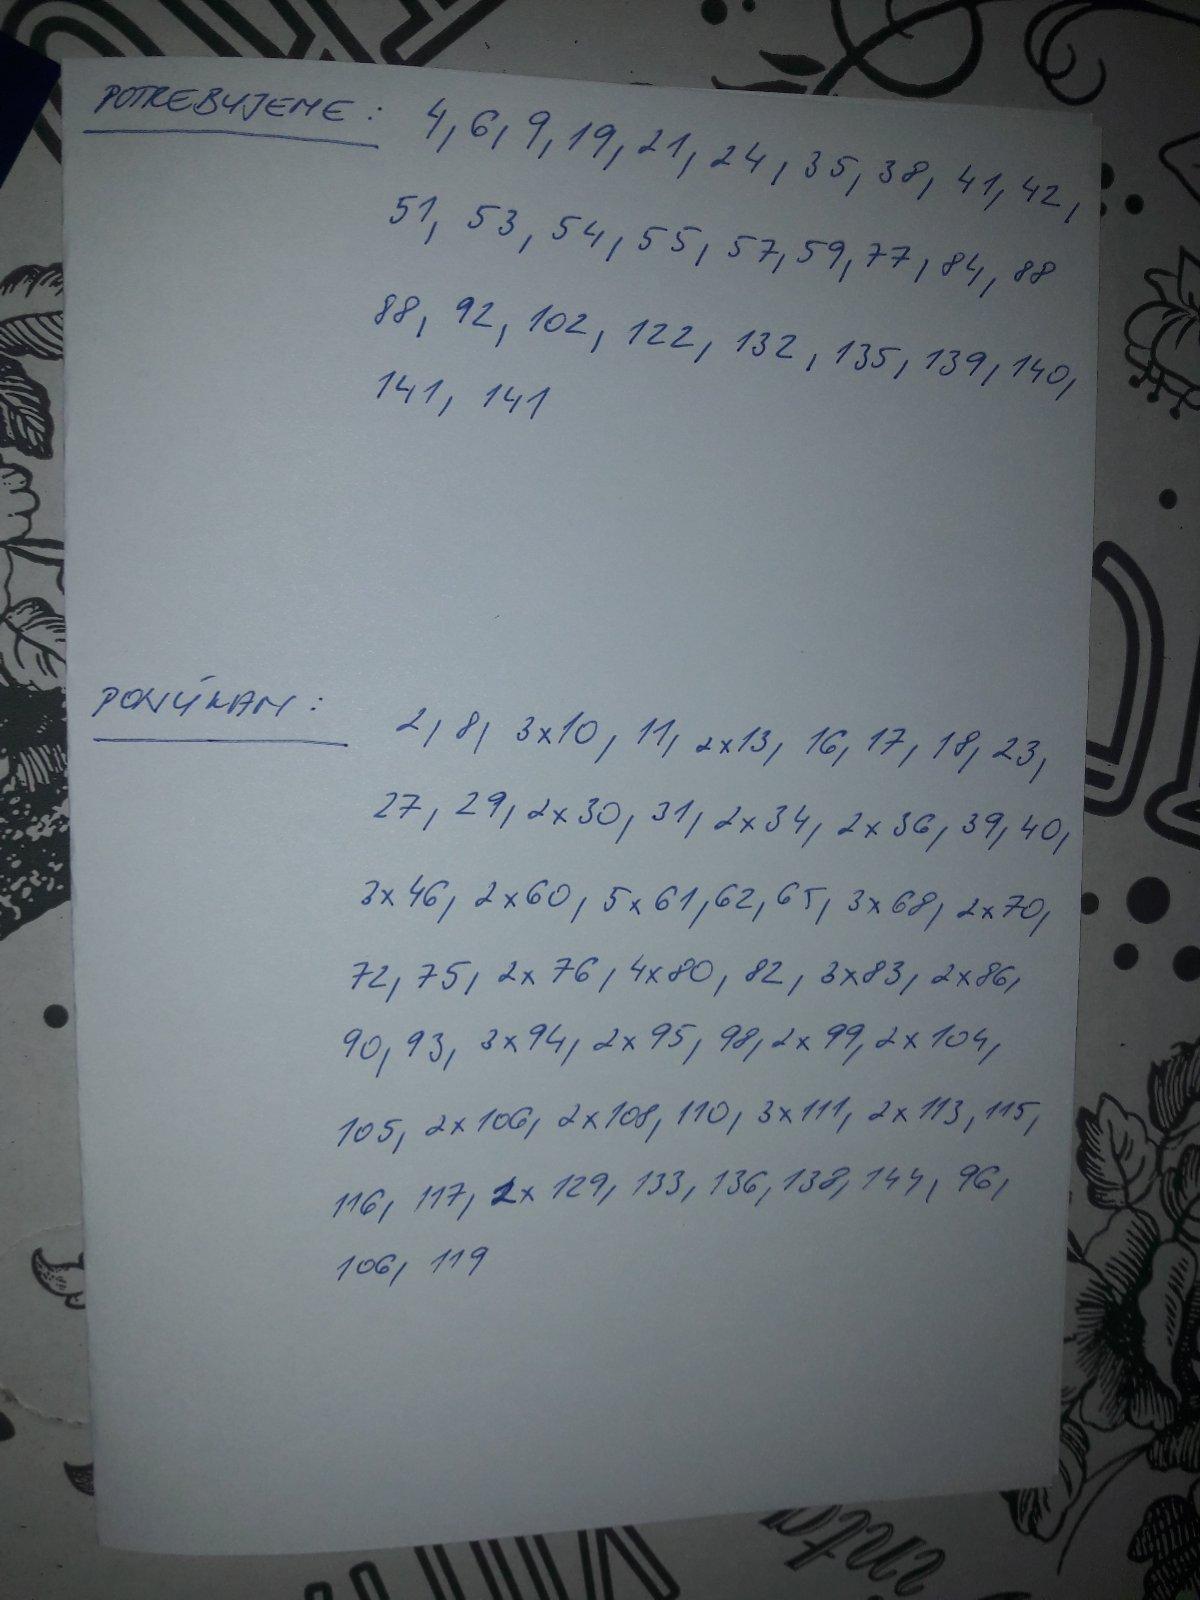 POTREBUJEME: 4, 6, 9, 19, 21, 24, 35, 38, 41, 42,
51, 53, 54, 55, 57, 59, 77, 84, 88
88, 92, 102, 122, 132, 135, 139, 140,
141, 141
PONÚKAM: 2, 8, 3x10, 11, 2x13, 16, 17, 18, 23,
27, 29, 2x30, 31, 2x34, 2x36, 39, 40,
3x46, 2x60, 5x61, 62, 65, 3x68, 2x70,
72, 75, 2x76, 4x80, 82, 3x83, 2x86,
90, 93, 3x94, 2x95, 98, 2x99, 2x104,
105, 2x106, 2x108, 110, 3x111, 2x113, 115,
116, 117, 2x129, 133, 136, 138, 144, 96,
106, 119